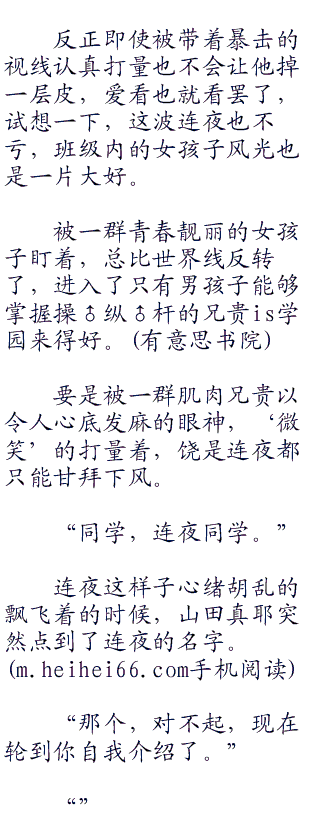 反正即使被带着暴击的
视线认真打量也不会让他掉
一层皮，爱看也就看罢了，
试想一下，这波连夜也不
亏，班级内的女孩子风光也
是一片大好。
被一群青春靓丽的女孩
子盯着，总比世界线反转
了，进入了只有男孩子能够
掌握操♂纵♂杆的兄贵is学
园来得好。(有意思书院)
要是被一群肌肉兄贵以
令人心底发麻的眼神，‘微
笑’的打量着，饶是连夜都
只能甘拜下风。
“同学，连夜同学。”
连夜这样子心绪胡乱的
飘飞着的时候，山田真耶突
然点到了连夜的名字。
(m.heihei66.com手机阅读)
“那个，对不起，现在
轮到你自我介绍了。”
“”